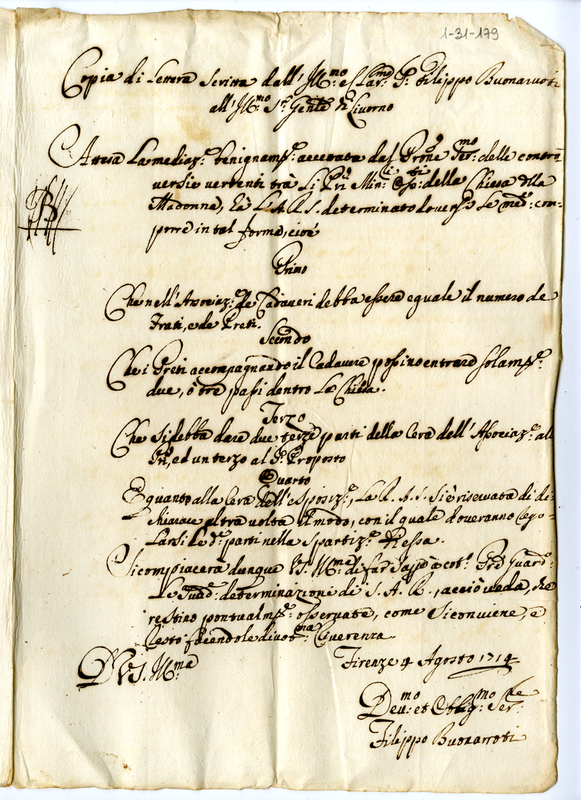 1-31-179
Copia di Lettera Scritta dall'Ill.mo e Clar.mo S.r Filippo Buonarroti
all'Ill.mo S.r Gente di Livorno
Attesa La mediaz.e benignam.te accettata dal Prone Ser.mo delle contro
versie vertenti trà Li PP.ri Min.i Oss.ti della Chiesa della
Madonna, hà L'A.R.S. determinato doversi Le med.e com-
porre in tal forma, cioè
Primo
Che nell'Associaz.e de Cadaveri debba essere eguale il numero de
Frati, e de Preti.
Secondo
Che i Preti accompagnando il Cadavere possino entrare solam.te
due, o tre passi dentro La Chiesa.
Terzo
Che si debba dare due terze parti della Cera dell'Associaz.e alli
PP.ri, ed un terzo al S.r Proposto
Quarto
E quanto alla Cera dell'esposiz.e, La R.A.S. si è riservata di di-
chiarare altra volta il modo, con il quale doveranno rego-
Larsi Le d.e parti nella spartiz.e d'essa.
Si compiacerà dunque V.S. Ill.ma di far sapere a cot.o Pre Guard.o
Le sudd.e determinazioni di S.A.R., acciò veda, che
restino pontualm.te osservate, come si conviene, e
resto facendole divot.ma reverenza.
D. V.S. Ill.ma
Firenze 4 Agosto 1714
Dev.mo et Obblig.mo Ser.re
Filippo Buonarroti